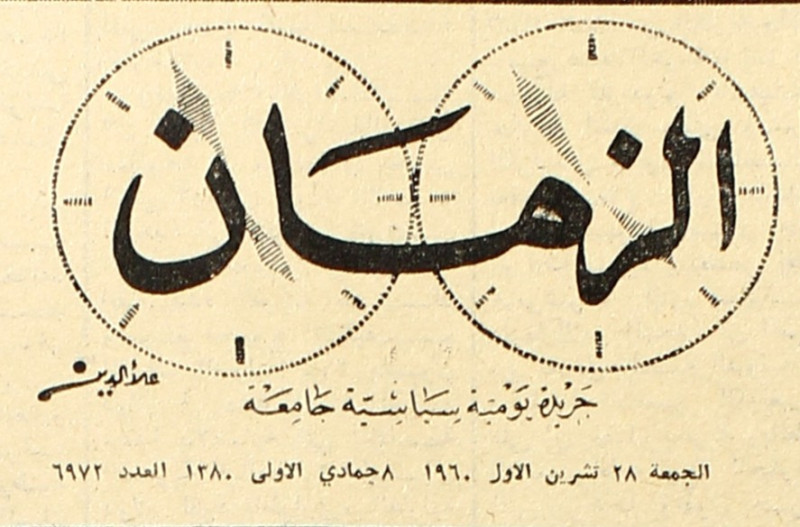 الزمان
علاء الدين
جريدة يومية سياسية جامعة
الجمعة ٢٨ تشرين الاول ١٩٦٠ ٨ جمادي الاولى ١٣٨٠ العدد ٦٩٧٢